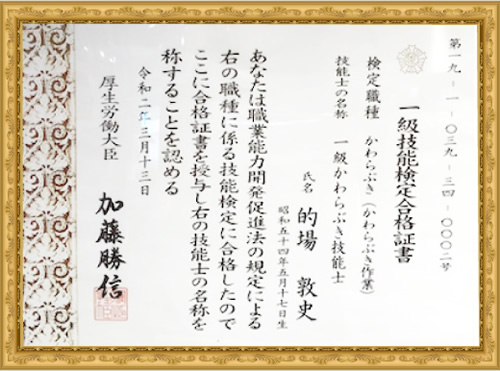 第一九-一-〇三九-三四-〇〇〇二号
一級技能検定合格証書
検定職種 かわらぶき(かわらぶき作業)
技能士の名称 一級かわらぶき技能士
氏名 的場 敦史
昭和五十四年五月十七日生
あなたは職業能力開発促進法の規定による
右の職種に係る技能検定に合格したので
ここに合格証書を授与し右の技能士の名称を
称することを認める
令和二年三月十三日
厚生労働大臣 加藤勝信